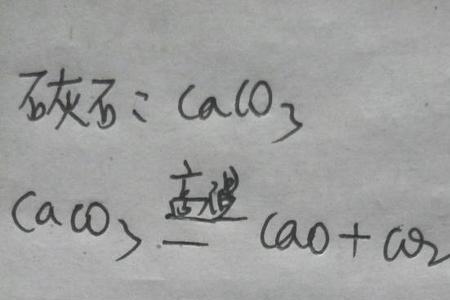 石灰石: CaCO3
CaCO3 高温 = CaO+CO2